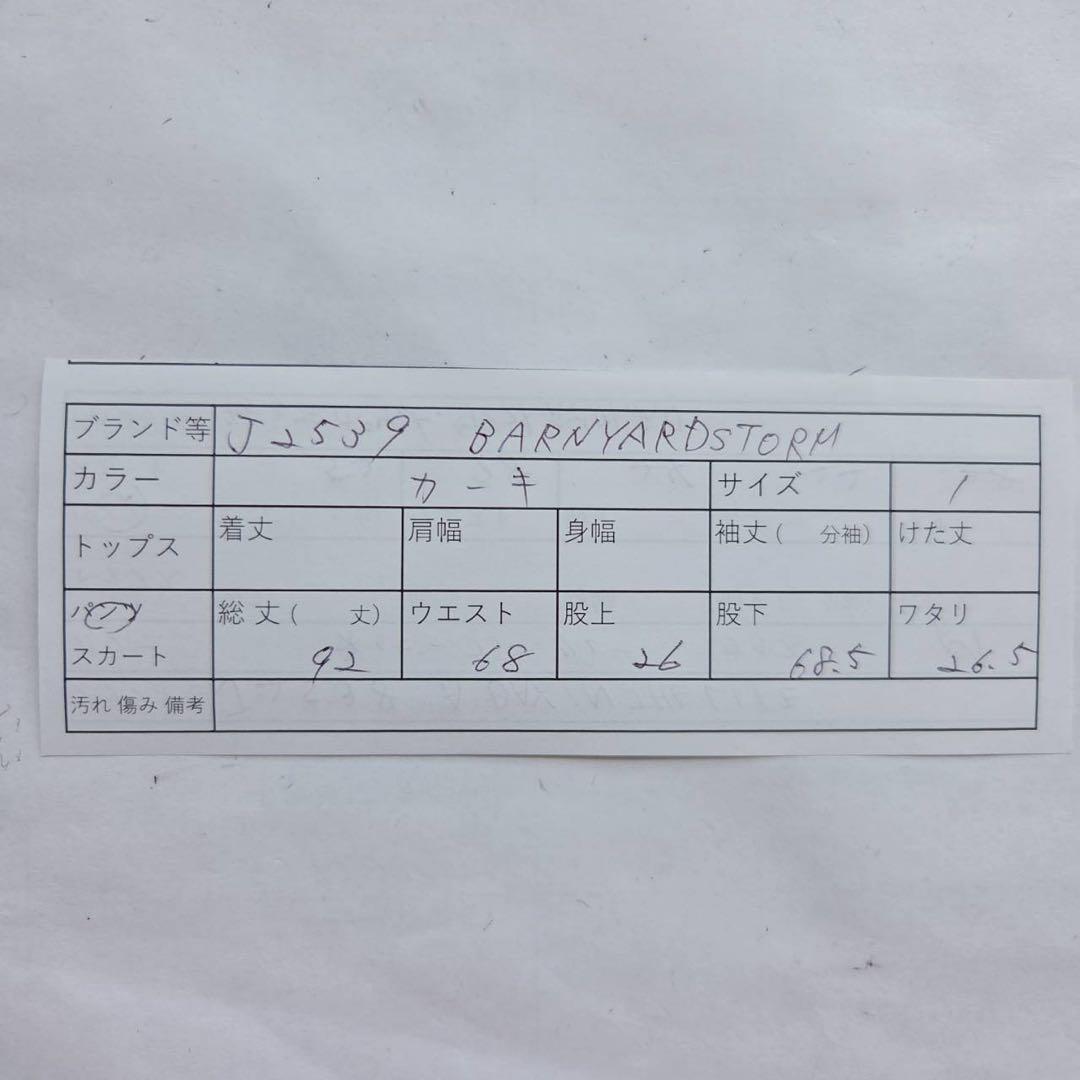 ブランド等 J2539 BARNYARDSTORM
カラー カーキ サイズ 1
トップス 着丈 肩幅 身幅 袖丈( 分袖) けた丈
パンツ 総丈( 丈) ウエスト 股上 股下 ワタリ
スカート 92 68 26 68.5 26.5
汚れ 傷み 備考